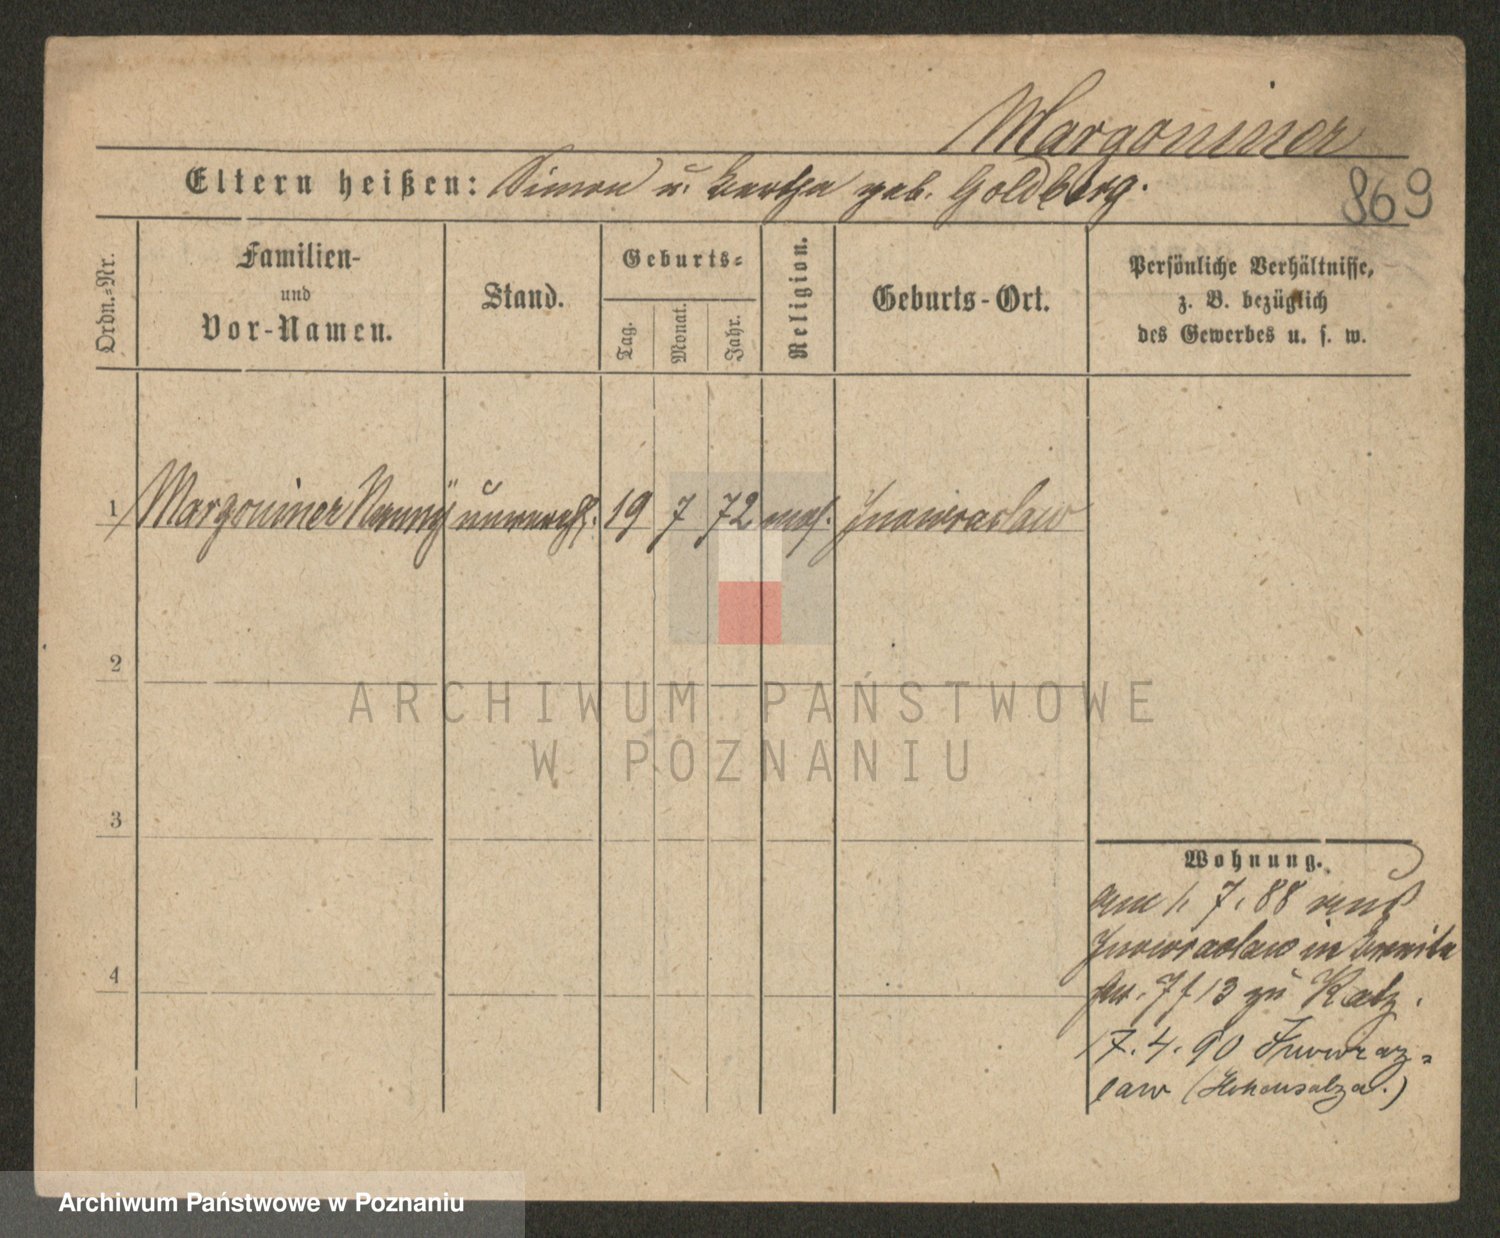 Margoniner
Eltern heißen: Simon u. Bertha geb. Goldberg.
869
Ordn.-Nr.
Familien-
und
Vor-Namen.
Stand.
Geburts-
Tag.
Monat.
Jahr.
Religion.
Geburts-Ort.
Persönliche Verhältnisse,
z. B. bezüglich
des Gewerbes u. s. w.
1 Margoniner Nanny unvereh. 19 7 72 mos. Inowraclaw
2
ARCHIWUM PAŃSTWOWE
W POZNANIU
3
Wohnung.
am 1. 7. 88 aus
Inowraclaw in Breite
Str. 7 / 13 zu Katz.
17. 4. 90 Inowraz-
law (Hohensalza.)
4
Archiwum Państwowe w Poznaniu